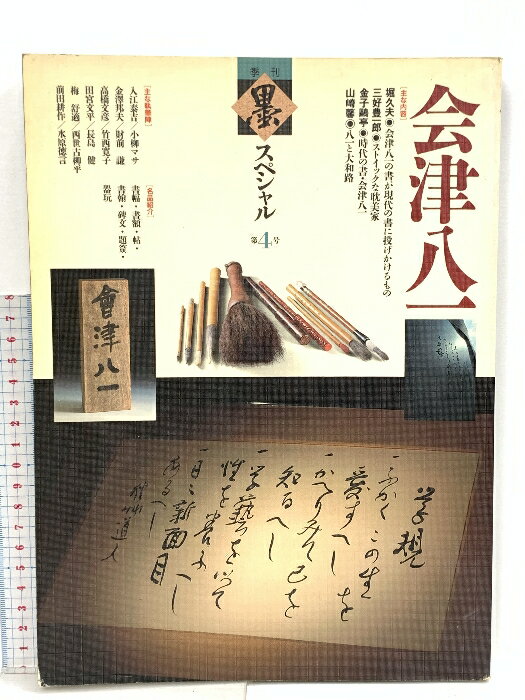 会津八一
[主な内容]
堀久夫●会津八一の書が現代の書に投げかけるもの
三好豊一郎●ストイックな耽美家
金子鷗亭●時代の書・会津八一
山崎馨●八一と大和路
季刊
墨
スペシャル
第4号
[主な執筆陣]
入江泰吉/小柳マサ
金澤邦夫/財前 謙
高橋文彦/竹西寛子
田宮文平/長島 健
梅 舒適/西世古柳平
前田耕作/水原徳言
[名品紹介]
書幅・書額・帖・
書簡・碑文・題簽・
器玩
會津八一
学規
一 ふかくこの生を
愛すへし
一 かへりみて己を
知るへし
一 学藝を以て
性を養ふへし
一 日々新面目
あるへし